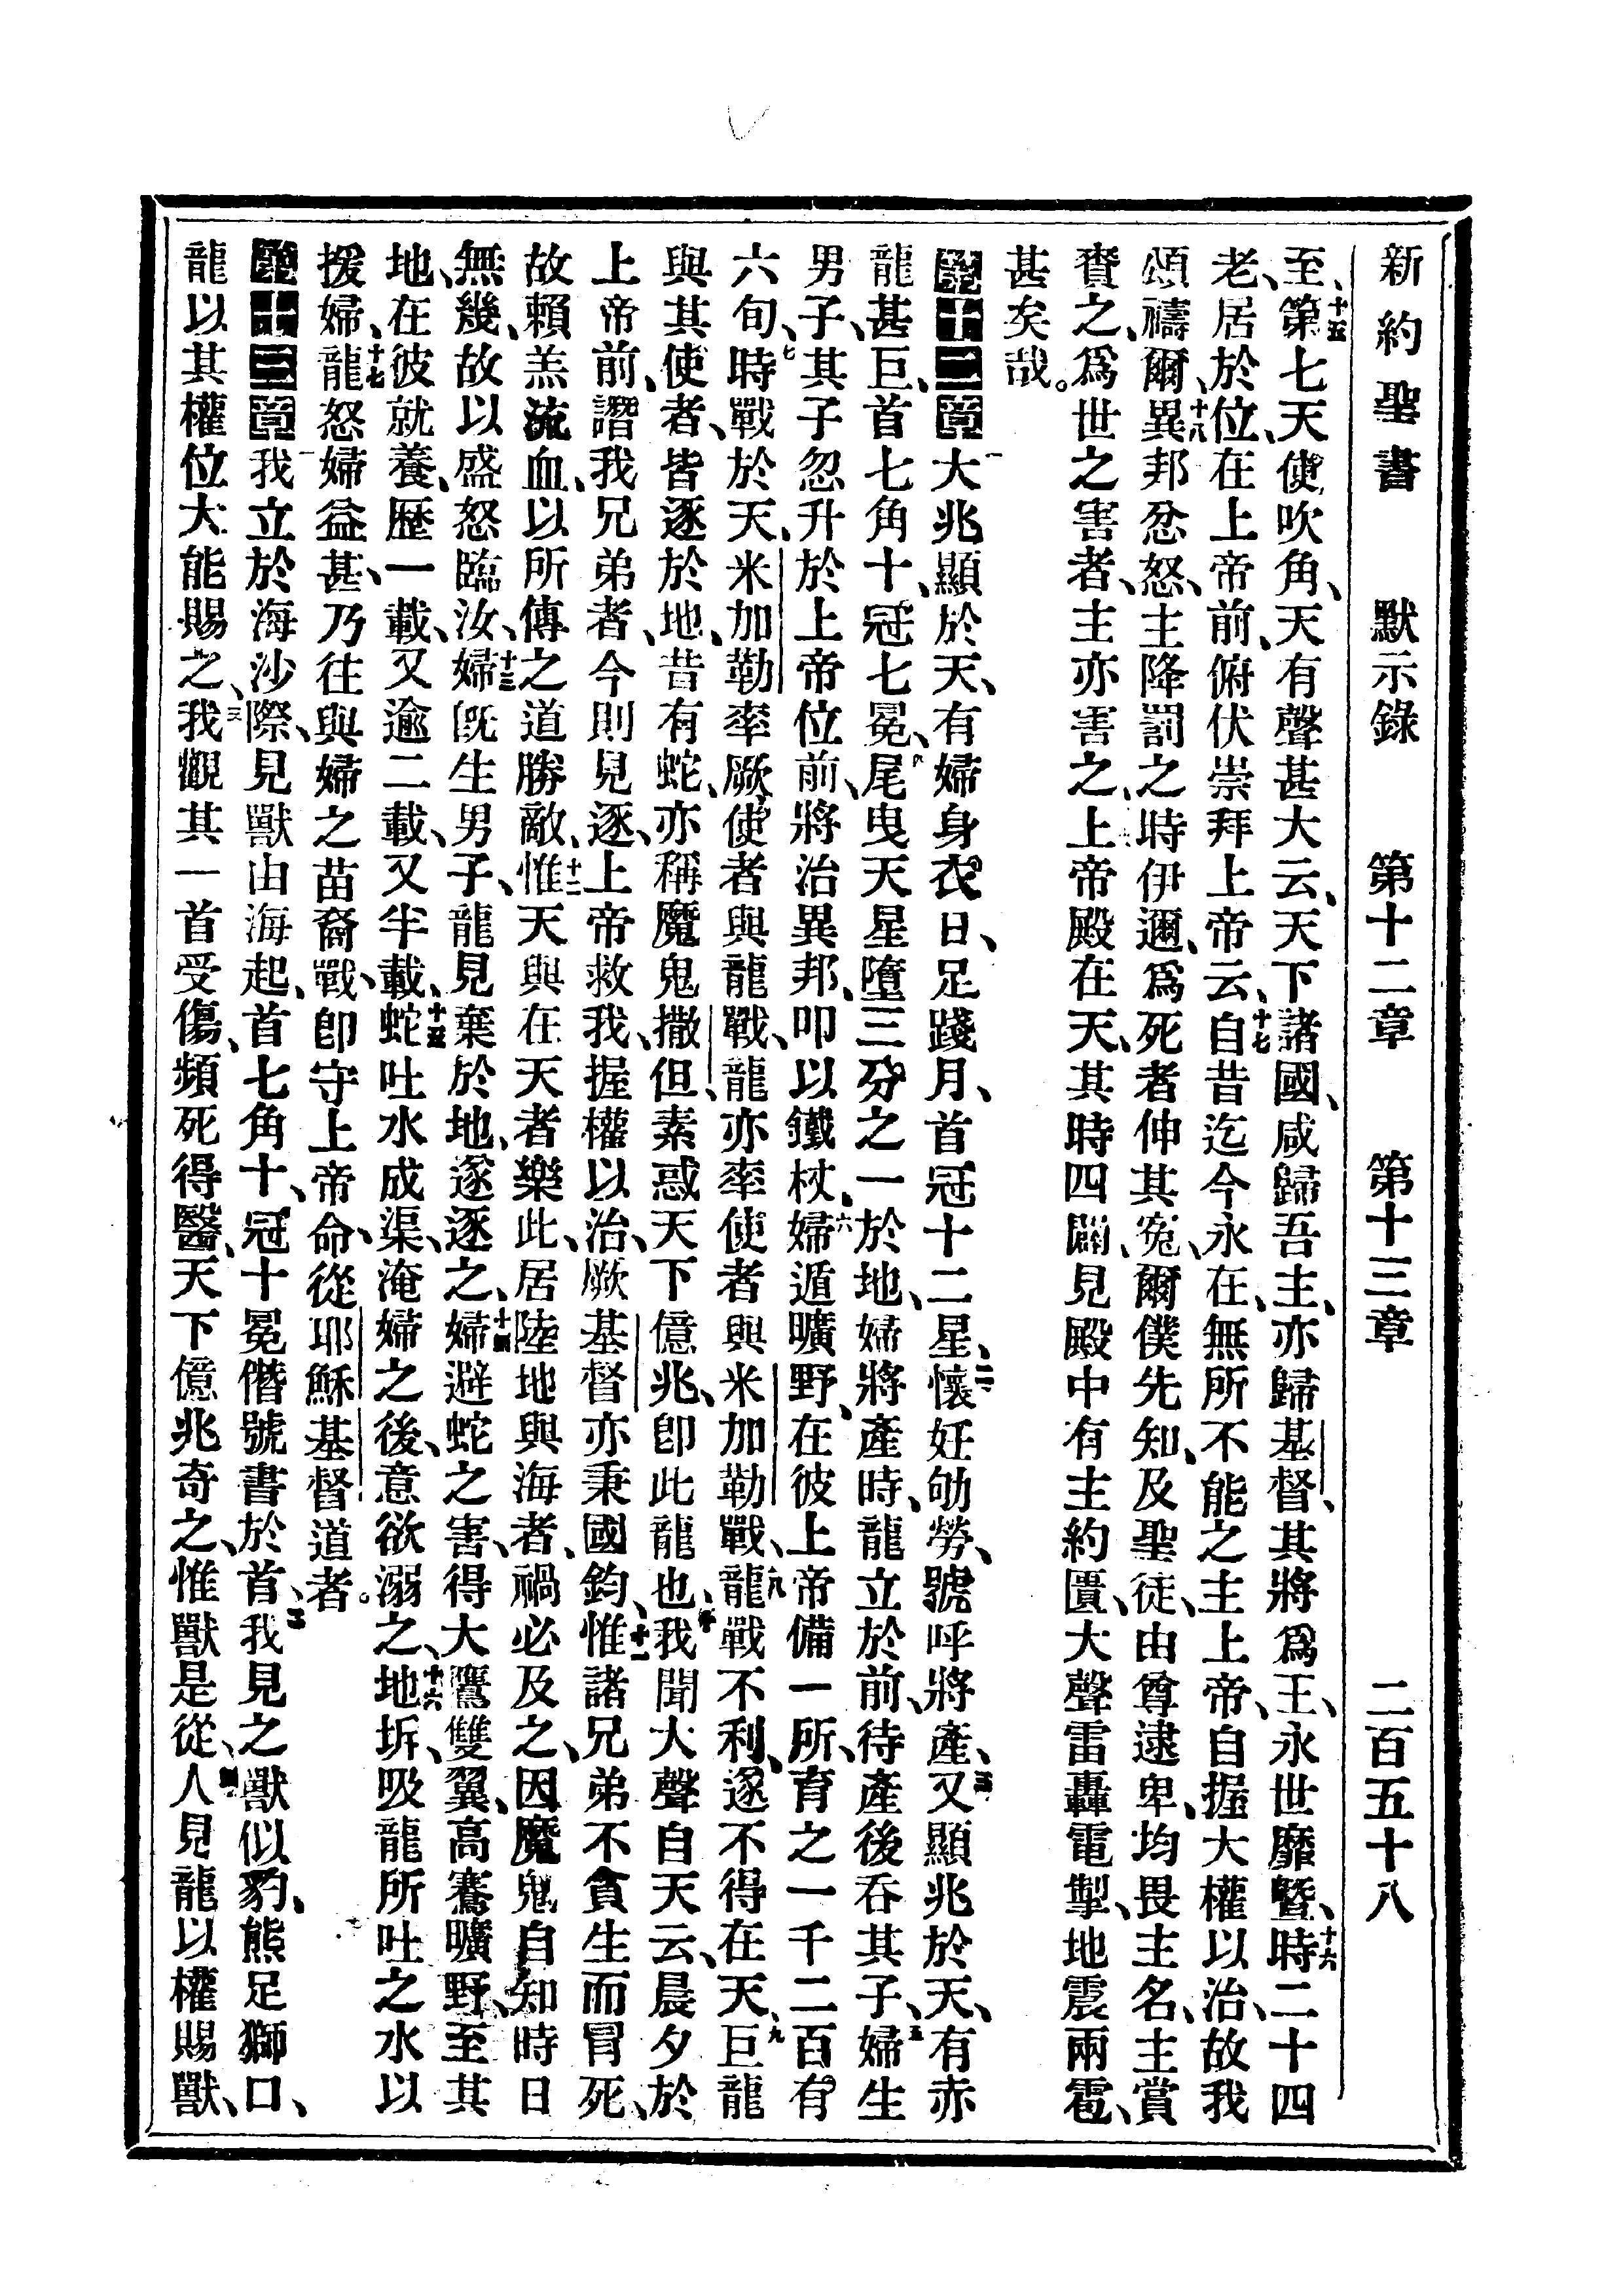 新約聖書 默示錄 第十二章 第十三章 二百五十八
至、十五第七天使吹角、天有聲甚大云、天下諸國、咸歸吾主、亦歸基督、其將爲王、永世靡曁、十六時二十四
老、居於位、在上帝前、俯伏崇拜上帝云、十七自昔迄今永在、無所不能之主上帝、自握大權以治、故我
頌禱爾、十八異邦忿怒、主降罰之時伊邇、爲死者伸其寃、爾僕先知、及聖徒、由尊逮卑、均畏主名、主賞
賚之、爲世之害者、主亦害之、上帝殿在天、其時四闢、見殿中有主約匱、大聲雷轟電掣、地震雨雹、
甚矣哉。
第十二章一大兆顯於天、有婦身衣日、足踐月、首冠十二星、二懷妊劬勞、號呼將產、三又顯兆於天、有赤
龍甚巨、首七角十、冠七冕、四尾曳天星、墮三分之一於地、婦將產時、龍立於前、待產後吞其子、五婦生
男子、其子忽升於上帝位前、將治異邦、叩以鐵杖、六婦遁曠野、在彼上帝備一所、育之一千二百有
六旬、七時戰於天、米加勒率厥使者與龍戰、龍亦率使者與米加勒戰、八龍戰不利、遂不得在天、九巨龍
與其使者、皆逐於地、昔有蛇、亦稱魔鬼撒但、素惑天下億兆、卽此龍也、十我聞大聲自天云、晨夕於
上帝前、譖我兄弟者、今則見逐、上帝救我、握權以治、厥基督亦秉國鈞、十一惟諸兄弟不貪生而冒死、
故賴羔流血、以所傳之道勝敵、十二惟天與在天者樂此、居陸地與海者、禍必及之、因魔鬼自知時日
無幾、故以盛怒臨汝、十三婦旣生男子、龍見棄於地、遂逐之、十四婦避蛇之害、得大鷹雙翼、高騫曠野、至其
地、在彼就養、歷一載、又逾二載、又半載、十五蛇吐水成渠、淹婦之後、意欲溺之、十六地坼、吸龍所吐之水以
援婦、十七龍怒婦益甚、乃往與婦之苗裔戰、卽守上帝命、從耶穌基督道者。
第十三章一我立於海沙際、見獸由海起、首七角十、冠十冕、僭號書於首、二我見之獸似豹、熊足獅口、
龍以其權位大能賜之、三我觀其一首受傷、頻死得醫、天下億兆奇之、惟獸是從、四人見龍以權賜獸、